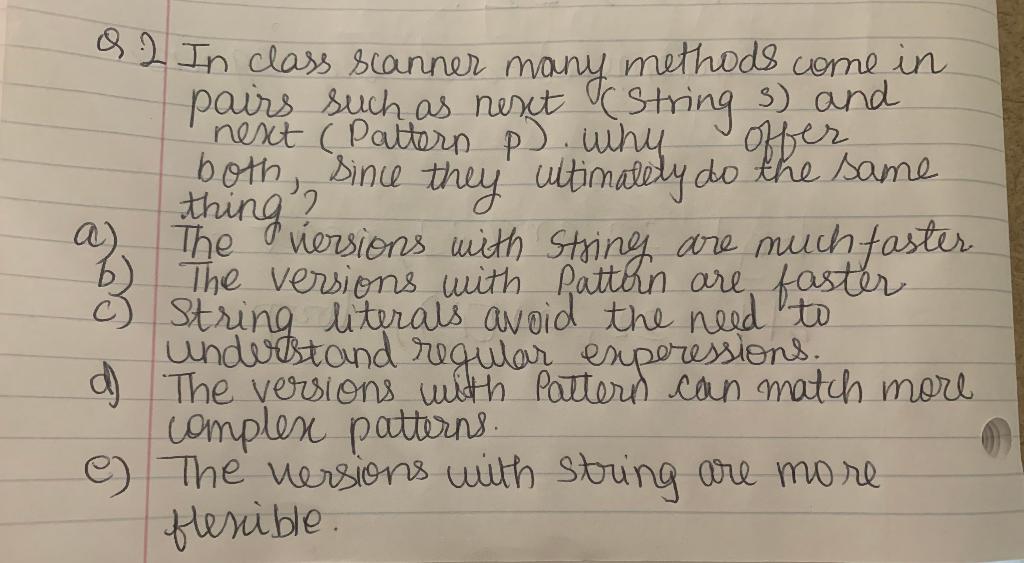 Q 2 In class scanner many methods come in
pairs such as next (String s) and
next (Pattern p). why offer
both, since they ultimately do the same
thing?
a) The versions with String are much faster
b) The versions with Pattern are faster.
c) String literals avoid the need to
understand regular experessions.
d) The versions with Pattern can match more
complex patterns.
e) The versions with string are more
flexible.